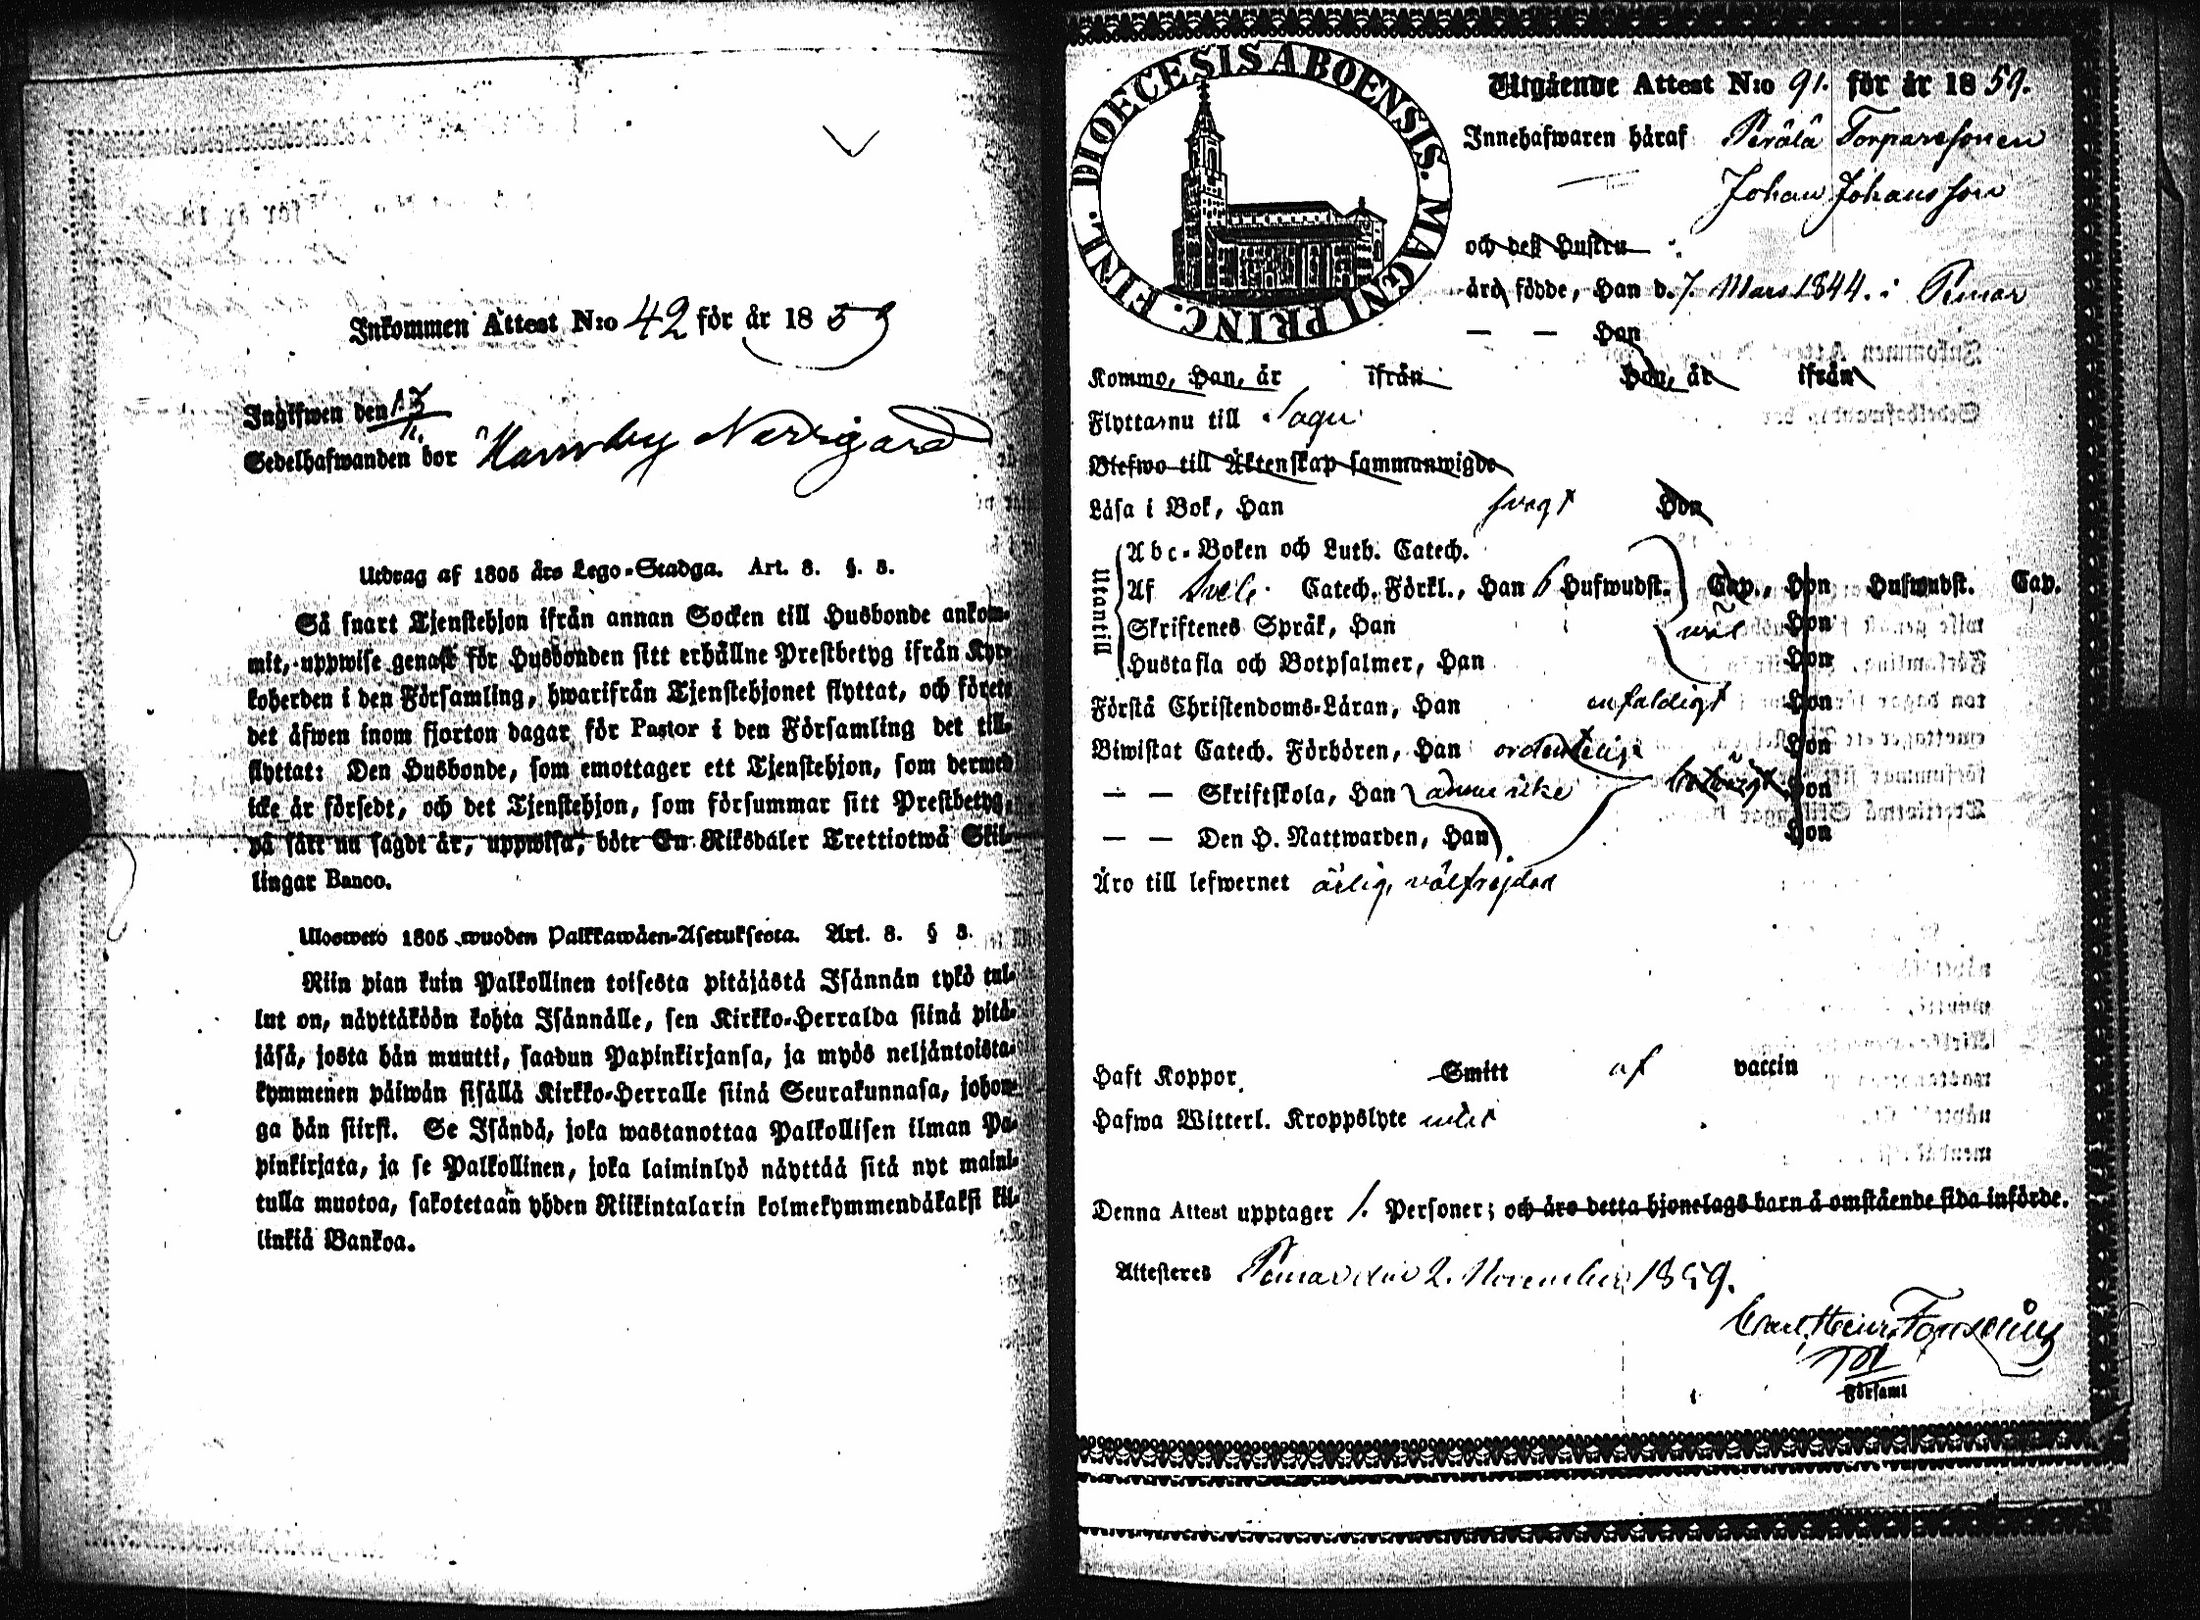 Inkommen Attest N:o 42 för år 1859
Ingifwen den 13/11.
Sedelhafwanden bor Hamby Norrgård
Utdrag af 1805 års Lego-Stadga. Art. 8. §. 3.
Så snart Tjenstehjon ifrån annan Socken till Husbonde ankom-
mit, uppwise genast för Husbonden sitt erhållne Prestbetyg ifrån Kyr-
koherden i den Församling, hwarifrån Tjenstehjonet flyttat, och förete
det äfwen inom fjorton dagar för Pastor i den Församling det till-
flyttat: Den Husbonde, som emottager ett Tjenstehjon, som dermed
icke är försedt, och det Tjenstehjon, som försummar sitt Prestbetyg,
på sätt nu sagdt är, uppwisa, böte En Riksdaler Trettiotwå Skil-
lingar Banco.
Ulosweto 1805 wuoden Palkkawäen-Asetuksesta. Art. 8. § 3.
Niin pian kuin Palkollinen toisesta pitäjästä Isännän tykö tul-
lut on, näyttäköön kohta Isännälle, sen Kirkko-Herralda siinä pitä-
jäsä, josta hän muutti, saadun Papinkirjansa, ja myös neljäntoista-
kymmenen päiwän sisällä Kirkko-Herralle siinä Seurakunnasa, johon-
ga hän siirsi. Se Isändä, joka wastanottaa Palkollisen ilman Pa-
pinkirjata, ja se Palkollinen, joka laiminlyö näyttää sitä nyt maini-
tulla muotoa, sakotetaan yhden Riikintalarin kolmekymmendäkaksi kil-
linkiä Bankoa.
DIOECESIS ABOENSIS. MAGNI PRINC. FINL.
Utgående Attest N:o 91. för år 1859.
Innehafwaren häraf Perälä Torparesonen
Johan Johansson
och deß Hustru
äro födde, Han d. 7. Mars 1844. i Pemar
— — Hon
Kommo, Han, år ifrån Hon, år ifrån
Flytta nu till Sagu
Blefwo till Äktenskap sammanwigde
Läsa i Bok, Han svagt Hon
Utantill
Abc-Boken och Luth. Catech.
Af Svebe. Catech. Förkl., Han 6 Hufwudst. Cap., Hon Hufwudst. Cap.
Skriftenes Språk, Han väl Hon
Hustafla och Botpsalmer, Han Hon
Förstå Christendoms-Läran, Han enfaldigt Hon
Biwistat Catech. Förhören, Han ordentelig Hon
— — Skriftskola, Han ännu icke Hon
— — Den H. Nattwarden, Han Hon
Äro till lefwernet ärlig, välfrejdad
Haft Koppor, Smitt af vaccin
Hafwa Witterl. Kroppslyte intet
Denna Attest upptager 1. Personer; och äro detta hjonelags barn å omstående sida införde.
Attesteres Pemar den 2. November 1859.
Carl Henr. Forssell
Församl